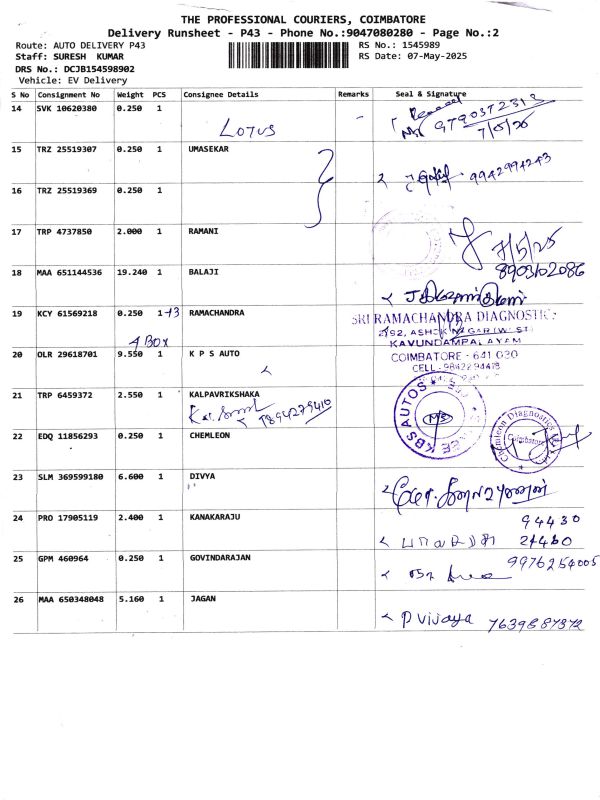 THE PROFESSIONAL COURIERS, COIMBATORE
Delivery Runsheet - P43 - Phone No.:9047080280 - Page No.:2
Route: AUTO DELIVERY P43
RS No.: 1545989
Staff: SURESH KUMAR
RS Date: 07-May-2025
DRS No.: DCJB154598902
Vehicle: EV Delivery
S No Consignment No Weight PCS Consignee Details Remarks Seal & Signature
14 SVK 10620380 0.250 1
LOTUS
9790372313
7/5/25
15 TRZ 25519307 0.250 1 UMASEKAR
9942994243
16 TRZ 25519369 0.250 1
17 TRP 4737850 2.000 1 RAMANI
7/5/25
8903102086
18 MAA 651144536 19.240 1 BALAJI
19 KCY 61569218 0.250 1 RAMACHANDRA
SRI RAMACHANDRA DIAGNOSTIC
2/92, ASHOK NAGAR (WEST)
KAVUNDAMPALAYAM
COIMBATORE - 641 030
4 BOX
20 OLR 29618701 9.550 1 K P S AUTO
21 TRP 6459372 2.550 1 KALPAVRIKSHAKA
7894279410
KBS AUTOS
22 EDQ 11856293 0.250 1 CHEMLEON
Chemleon Diagnostics
Coimbatore
23 SLM 369599180 6.600 1 DIVYA
24 PRO 17905119 2.400 1 KANAKARAJU
94430
24460
25 GPM 460964 0.250 1 GOVINDARAJAN
9976254005
26 MAA 650348048 5.160 1 JAGAN
P Vijaya 7639887372